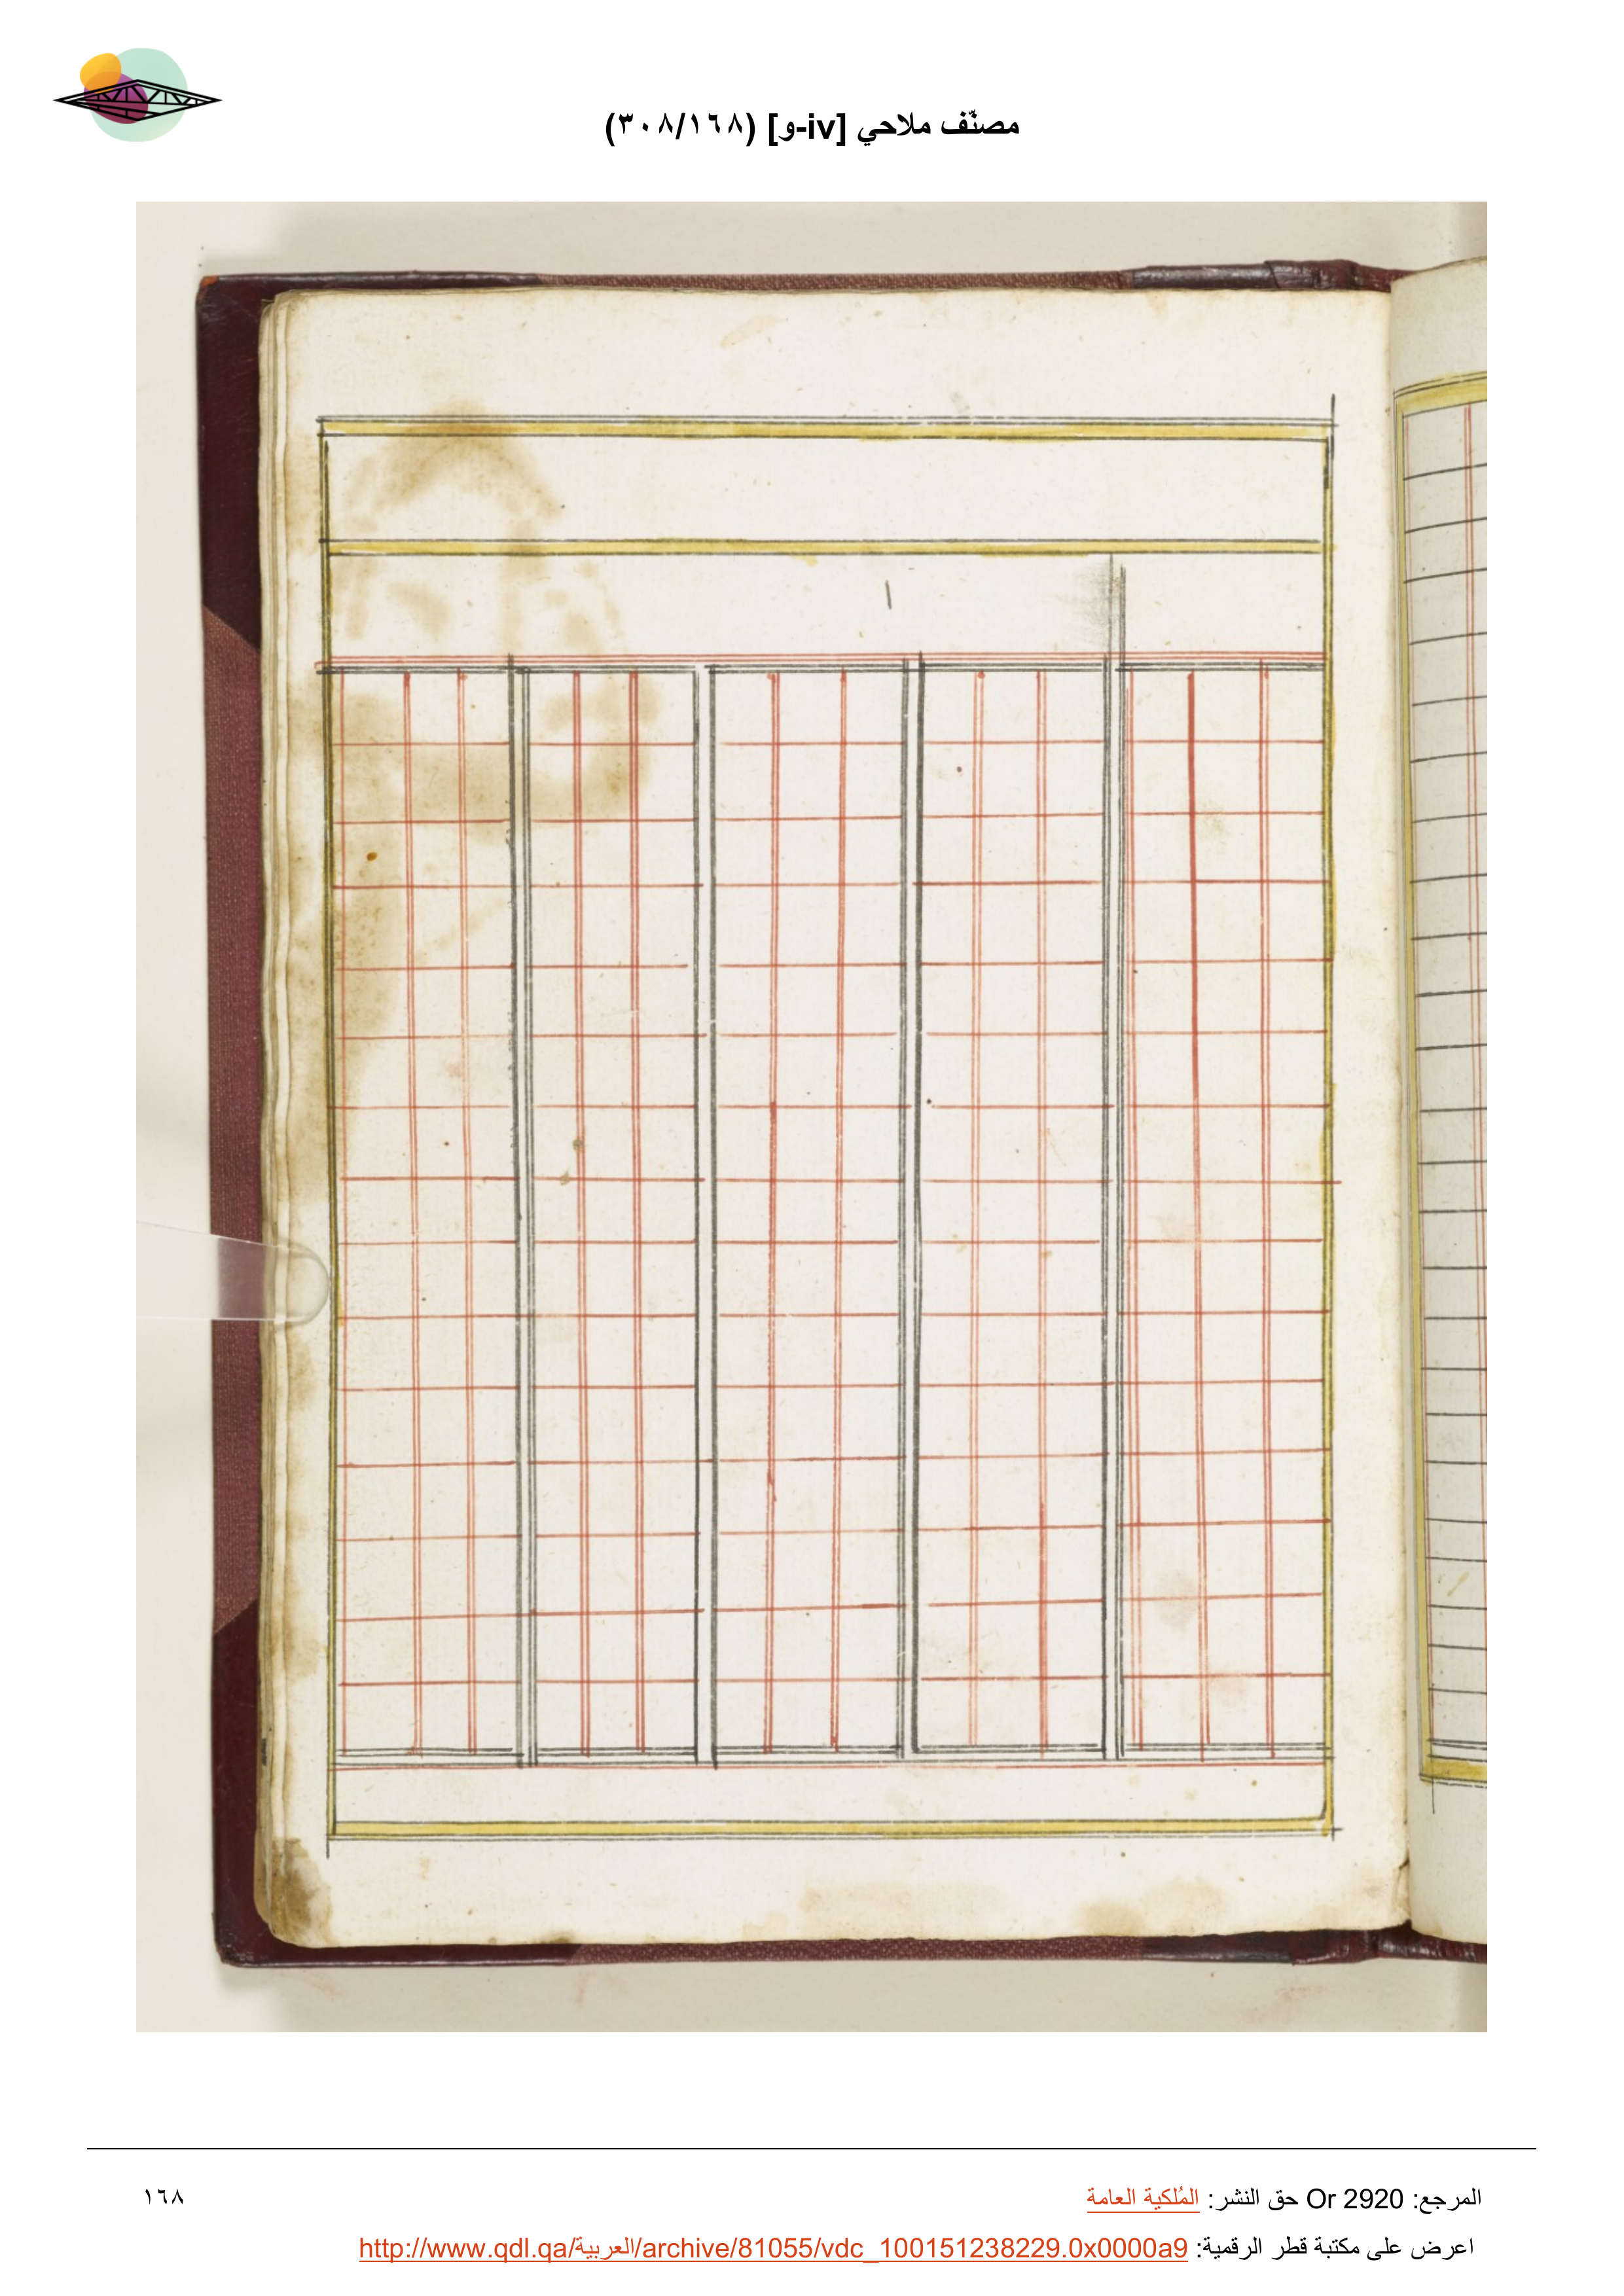 مصنّف ملاحي [iv-و] (٣٠٨/١٦٨)
المرجع: Or 2920 حق النشر: المُلكية العامة
١٦٨
اعرض على مكتبة قطر الرقمية: http://www.qdl.qa/العربية/archive/81055/vdc_100151238229.0x0000a9